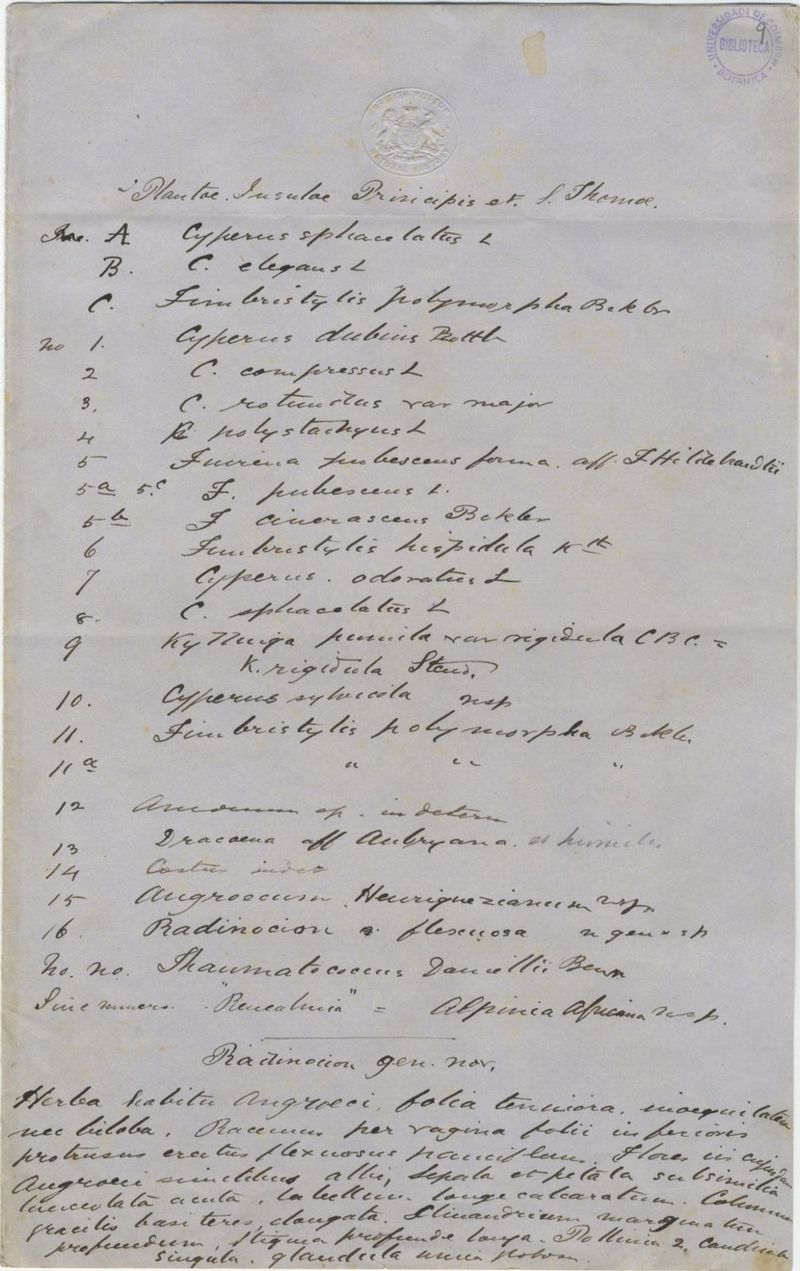 UNIVERSIDADE DE COIMBRA
BIBLIOTECA
BOTANICA
9
BRITISH MUSEUM
NATURAL HISTORY
Plantae Insulae Principis et S. Thomae.
A Cyperus sphacelatus L
B. C. elegans L
C. Fimbristylis polymorpha Bckler
no 1. Cyperus dubius Rottb
2 C. compressus L
3. C. rotundus var major
4 polystachyus L
5 Fuirena pubescens forma. aff. F Hildebrandtii
5a 5c F. pubescens L.
5b F cinerascens Bckler
6 Fimbristylis hispidula Kth
7 Cyperus. odoratus L
8. C. sphacelatus L
9 Kyllinga pumila var rigidula CBC. =
K. rigidula Steud.
10. Cyperus sylvicola nsp
11. Fimbristylis polymorpha Bckler
11a " " "
12 Amomum sp. indeterm
13 Dracaena aff Aubryana. et humilis
14 Costus indet
15 Angraecum Henriquezianum nsp
16. Radinocion flexuosa n gen & sp
No. no. Thaumatococcus Daniellii Benn
Sine numero. "Renealmia" = Alpinia Africana nsp.
Radinocion gen. nov.
Herba habitu Angraeci, folia tenuiora,
nec biloba. Racemus per vagina folii inferioris
protrusus erectus flexuosus pauciflorus. Flores iis
Angraeci similibus albi, sepala et petala subsimilia
lanceolata acuta, labellum longe calcaratum. Columna
gracilis basi teres, elongata. Clinandrium marginatum
profundum, stigma profunde Pollinia 2, caudicula
singula. glandula unica